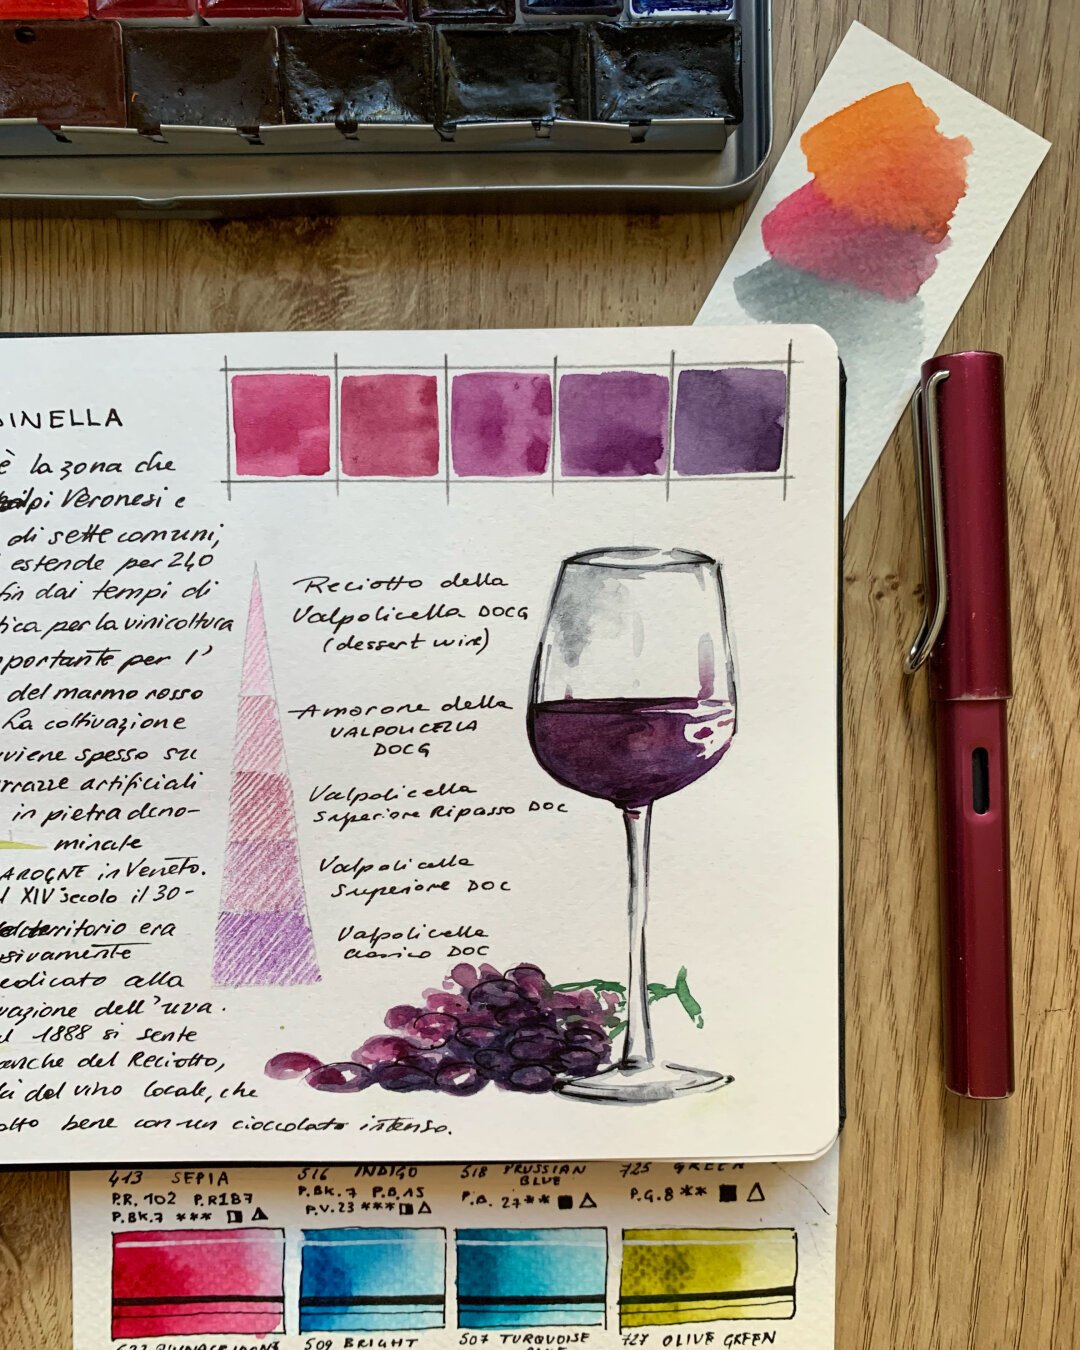 DINELLA
è la zona che
alpi Veronesi e
di sette comuni,
estende per 240
fin dai tempi di
tica per la vinicoltura
mportante per l'
del marmo rosso
La coltivazione
viene spesso su
rrazze artificiali
in pietra deno-
minate
AROGNE in Veneto.
l XIV secolo il 30-
territorio era
sivamente
edicato alla
vazione dell'uva.
al 1888 si sente
anche del Reciotto,
del vino locale, che
otto bene con un cioccolato intenso.
Reciotto della
Valpolicella DOCG
(dessert wine)
Amarone della
VALPOLICELLA
DOCG
Valpolicella
Superiore Ripasso DOC
Valpolicella
Superiore DOC
Valpolicella
Classico DOC
413 SEPIA
P.R. 102 P.R187
P.BK.7 ***
516 INDIGO
P.BK.7 P.B.15
P.V.23 ***
518 PRUSSIAN
BLUE
P.B. 27 **
725 GREEN
P.G.8 **
509 BRIGHT
507 TURQUOISE
BLUE
727 OLIVE GREEN